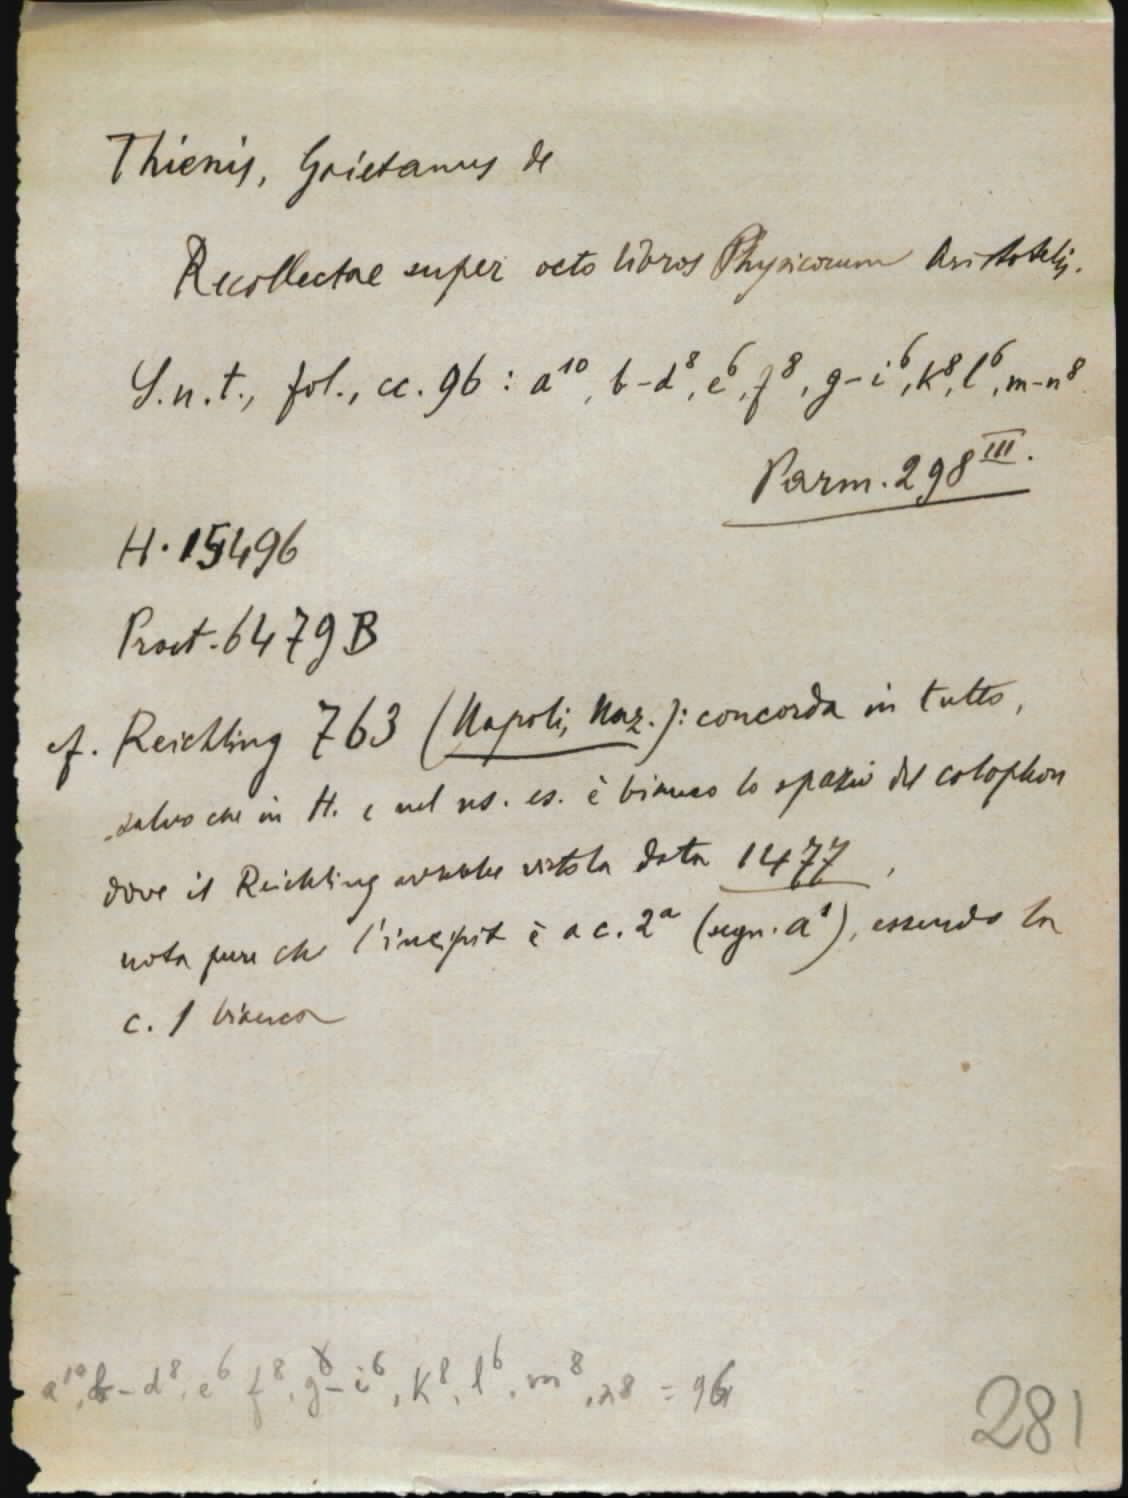 Thienis, Gaietanus de
Recollectae super octo libros Physicorum Aristotelis.
S.n.t., fol., cc. 96 : a¹⁰, b-d⁸, e⁶, f⁸, g-i⁶, k⁸, l⁶, m-n⁸
Parm. 298 III.
H. 15496
Proct. 6479 B
cf. Reichling 763 (Napoli, Naz.): concorda in tutto,
salvo che in H. e nel ns. es. è bianco lo spazio del colophon
dove il Reichling avrebbe vista la data 1477,
nota pure che l'incipit è a c. 2ᵃ (segn. a¹), essendo la
c. 1 bianca
a¹⁰, b-d⁸, e⁶ f⁸, g-i⁶, k⁸, l⁶, m⁸, n8 = 96
281